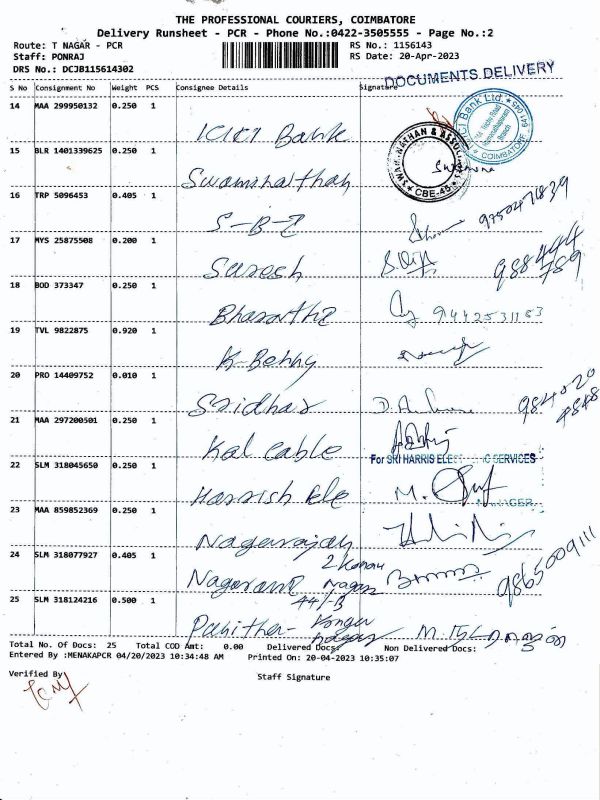 THE PROFESSIONAL COURIERS, COIMBATORE
Delivery Runsheet - PCR - Phone No.:0422-3505555 - Page No.:2
Route: T NAGAR - PCR RS No.: 1156143
Staff: PONRAJ RS Date: 20-Apr-2023
DRS No.: DCJB115614302
DOCUMENTS DELIVERY
S No Consignment No Weight PCS Consignee Details Signature
14 MAA 299950132 0.250 1 ICICI Bank
ICICI Bank Ltd. COIMBATORE 641 045
15 BLR 1401339625 0.250 1 Swaminathan
SWAMINATHAN & ASSO CBE-45
16 TRP 5096453 0.405 1 S-B-I
17 MYS 25875508 0.200 1 Suresh
988444
789
18 BOD 373347 0.250 1 Bharathi 9442531183
19 TVL 9822875 0.920 1 K-Benny
20 PRO 14409752 0.010 1 Sridhar
984020
4848
21 MAA 297200501 0.250 1 Kal Cable
22 SLM 318045650 0.250 1 Harrish Ele
For SRI HARRIS ELEC IC SERVICES
MANAGER
23 MAA 859852369 0.250 1 Nagarajan
24 SLM 318077927 0.405 1 2 Konau Nagar 9865009111
25 SLM 318124216 0.500 1 Pavithra- 44/-B Kongu Nagar
Total No. Of Docs: 25 Total COD Amt: 0.00 Delivered Docs: Non Delivered Docs:
Entered By :MENAKAPCR 04/20/2023 10:34:48 AM Printed On: 20-04-2023 10:35:07
Verified By Staff Signature